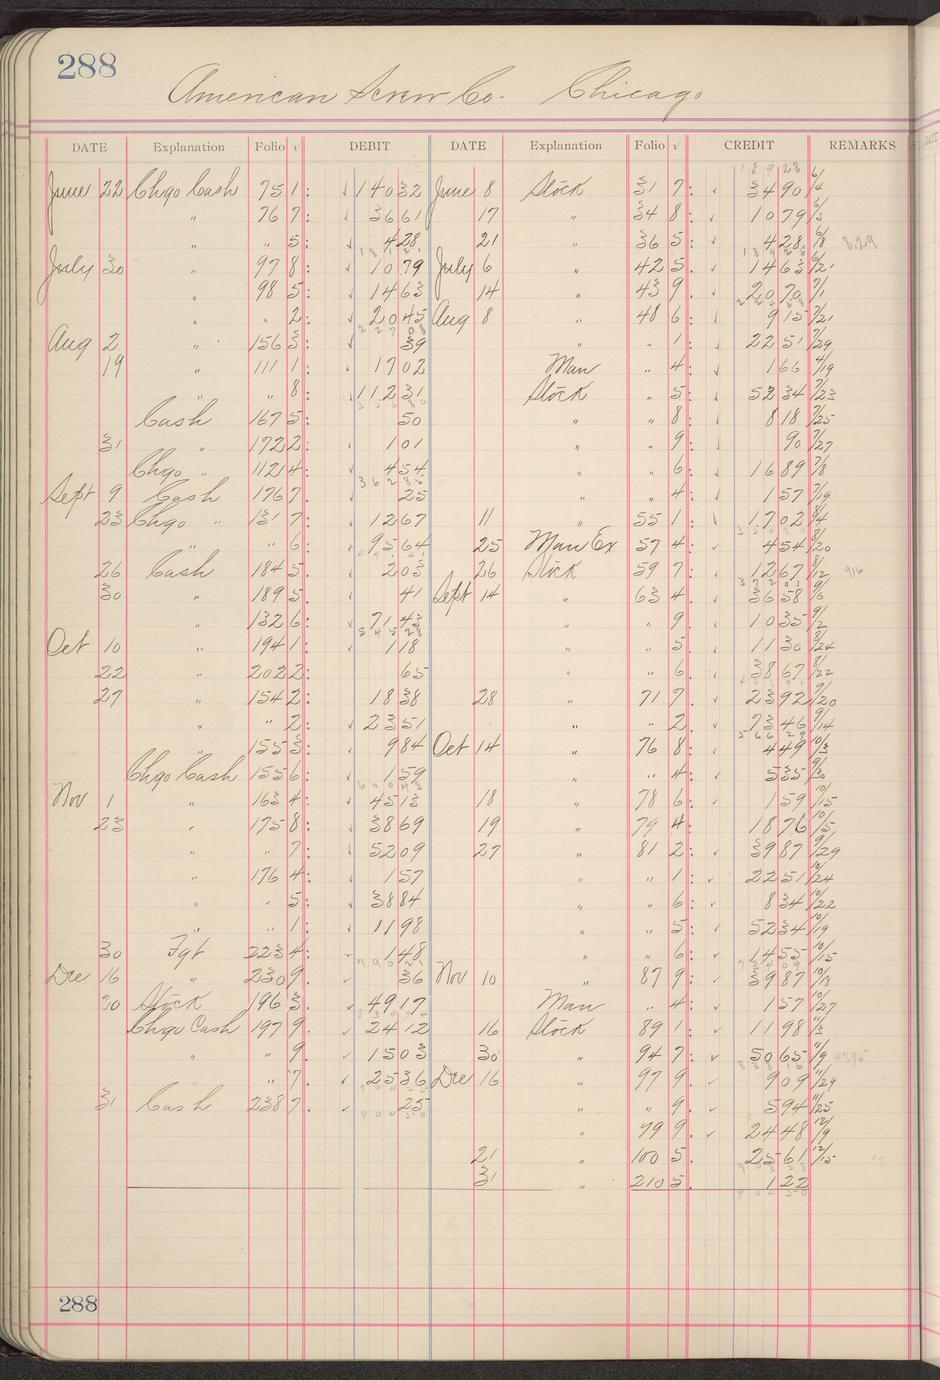 288
American Screw Co. Chicago
DATE Explanation Folio √ DEBIT DATE Explanation Folio √ CREDIT REMARKS
18928
June 22 Chgo Cash 75 1: √ 140 32 June 8 Stock 31 7: √ 34 90 6/4
" 76 7: √ 36 61 17 " 34 8: √ 10 79 6/3
" " 5: √ 4 28 21 " 36 5: √ 4 28 6/8 8.29
July 30 " 97 8: √ 10 79 July 6 " 42 5. √ 14 63 6/21
" 98 5: √ 14 63 14 " 43 9. √ 20 70 7/1
" " 2: √ 20 45 Aug 8 " 48 6: √ 9 15 7/21
Aug 2 " 156 3: √ 39 " " 1: √ 22 51 7/29
19 " 111 1 √ 17 02 Man " 4: √ 1 66 4/19
" " 8: √ 112 31 Stock " 5: √ 52 34 7/23
Cash 167 5: √ 50 " " 8: √ 8 18 7/25
31 " 172 2: √ 1 01 " " 9: √ 90 7/27
Chgo " 112 4: √ 4 54 " " 6: √ 16 89 7/8
Sept 9 Cash 176 7. √ 25 " " 4: √ 1 57 7/19
23 Chgo " 131 7: √ 12 67 11 " 55 1: √ 17 02 8/4
" " 6: √ 95 64 25 Man Ex 57 4: √ 4 54 8/20
26 Cash 184 5. √ 2 03 26 Stock 59 7: √ 12 67 8/12 916
30 " 189 5. √ 41 Sept 14 " 63 4: √ 36 58 9/6
" 132 6: √ 71 43 " " 9: √ 10 35 9/2
Oct 10 " 194 1: √ 1 18 " " 5. √ 11 30 8/24
22 " 202 2: √ 65 " " 6: √ 38 67 8/22
27 " 154 2: √ 18 38 28 " 71 7. √ 23 92 9/20
" " 2: √ 23 51 " " 2: √ 73 46 9/14
" 155 3: √ 9 84 Oct 14 " 76 8: √ 4 49 10/3
Chgo Cash 155 6: √ 1 59 " " 4: √ 5 35 9/30
Nov 1 " 163 4: √ 45 13 18 " 78 6: √ 1 59 10/15
23 " 175 8: √ 38 69 19 " 79 4: √ 18 76 10/5
" " 7: √ 52 09 27 " 81 2: √ 39 87 9/29
" 176 4: √ 1 57 " " 1: √ 22 51 10/24
" " 5: √ 38 84 " " 6: √ 8 34 10/22
" " 1: √ 11 98 " " 5: √ 52 34 10/19
30 Fgt 223 4: √ 1 48 " " 6: √ 14 55 10/15
Dec 16 " 230 9. √ 36 Nov 10 " 87 9: √ 39 87 10/18
20 Stock 196 3. √ 49 17 Man " 4: √ 1 57 10/27
Chgo Cash 197 9. √ 24 12 16 Stock 89 1: √ 11 98 11/3
" " 9. √ 15 03 30 " 94 7: √ 50 65 11/9 4795
" " 7. √ 25 36 Dec 16 " 97 9. √ 9 09 11/29
31 Cash 238 7. √ 25 " " 9. √ 5 94 11/25
" 99 9. √ 24 48 12/9
21 " 100 5. 25 61 12/15
31 " 210 5. 1 22
90450
288